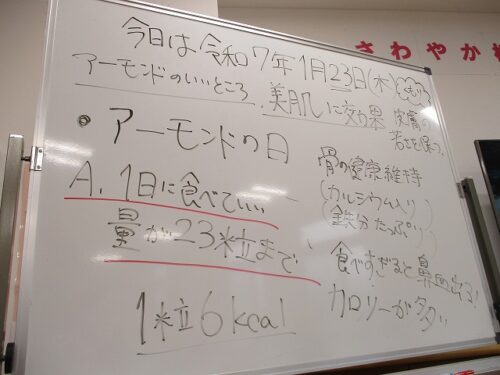 さわやか
今日は令和7年1月23日(木)
アーモンドのいいところ
美肌に効果 皮膚の
若さを保つ。
・アーモンドの日
骨の健康維持
A. 1日に食べていい
(カルシウム入り)
量が23粒まで
(鉄分たっぷり)
食べすぎると鼻血出る!
1粒6kcal
カロリーが多い